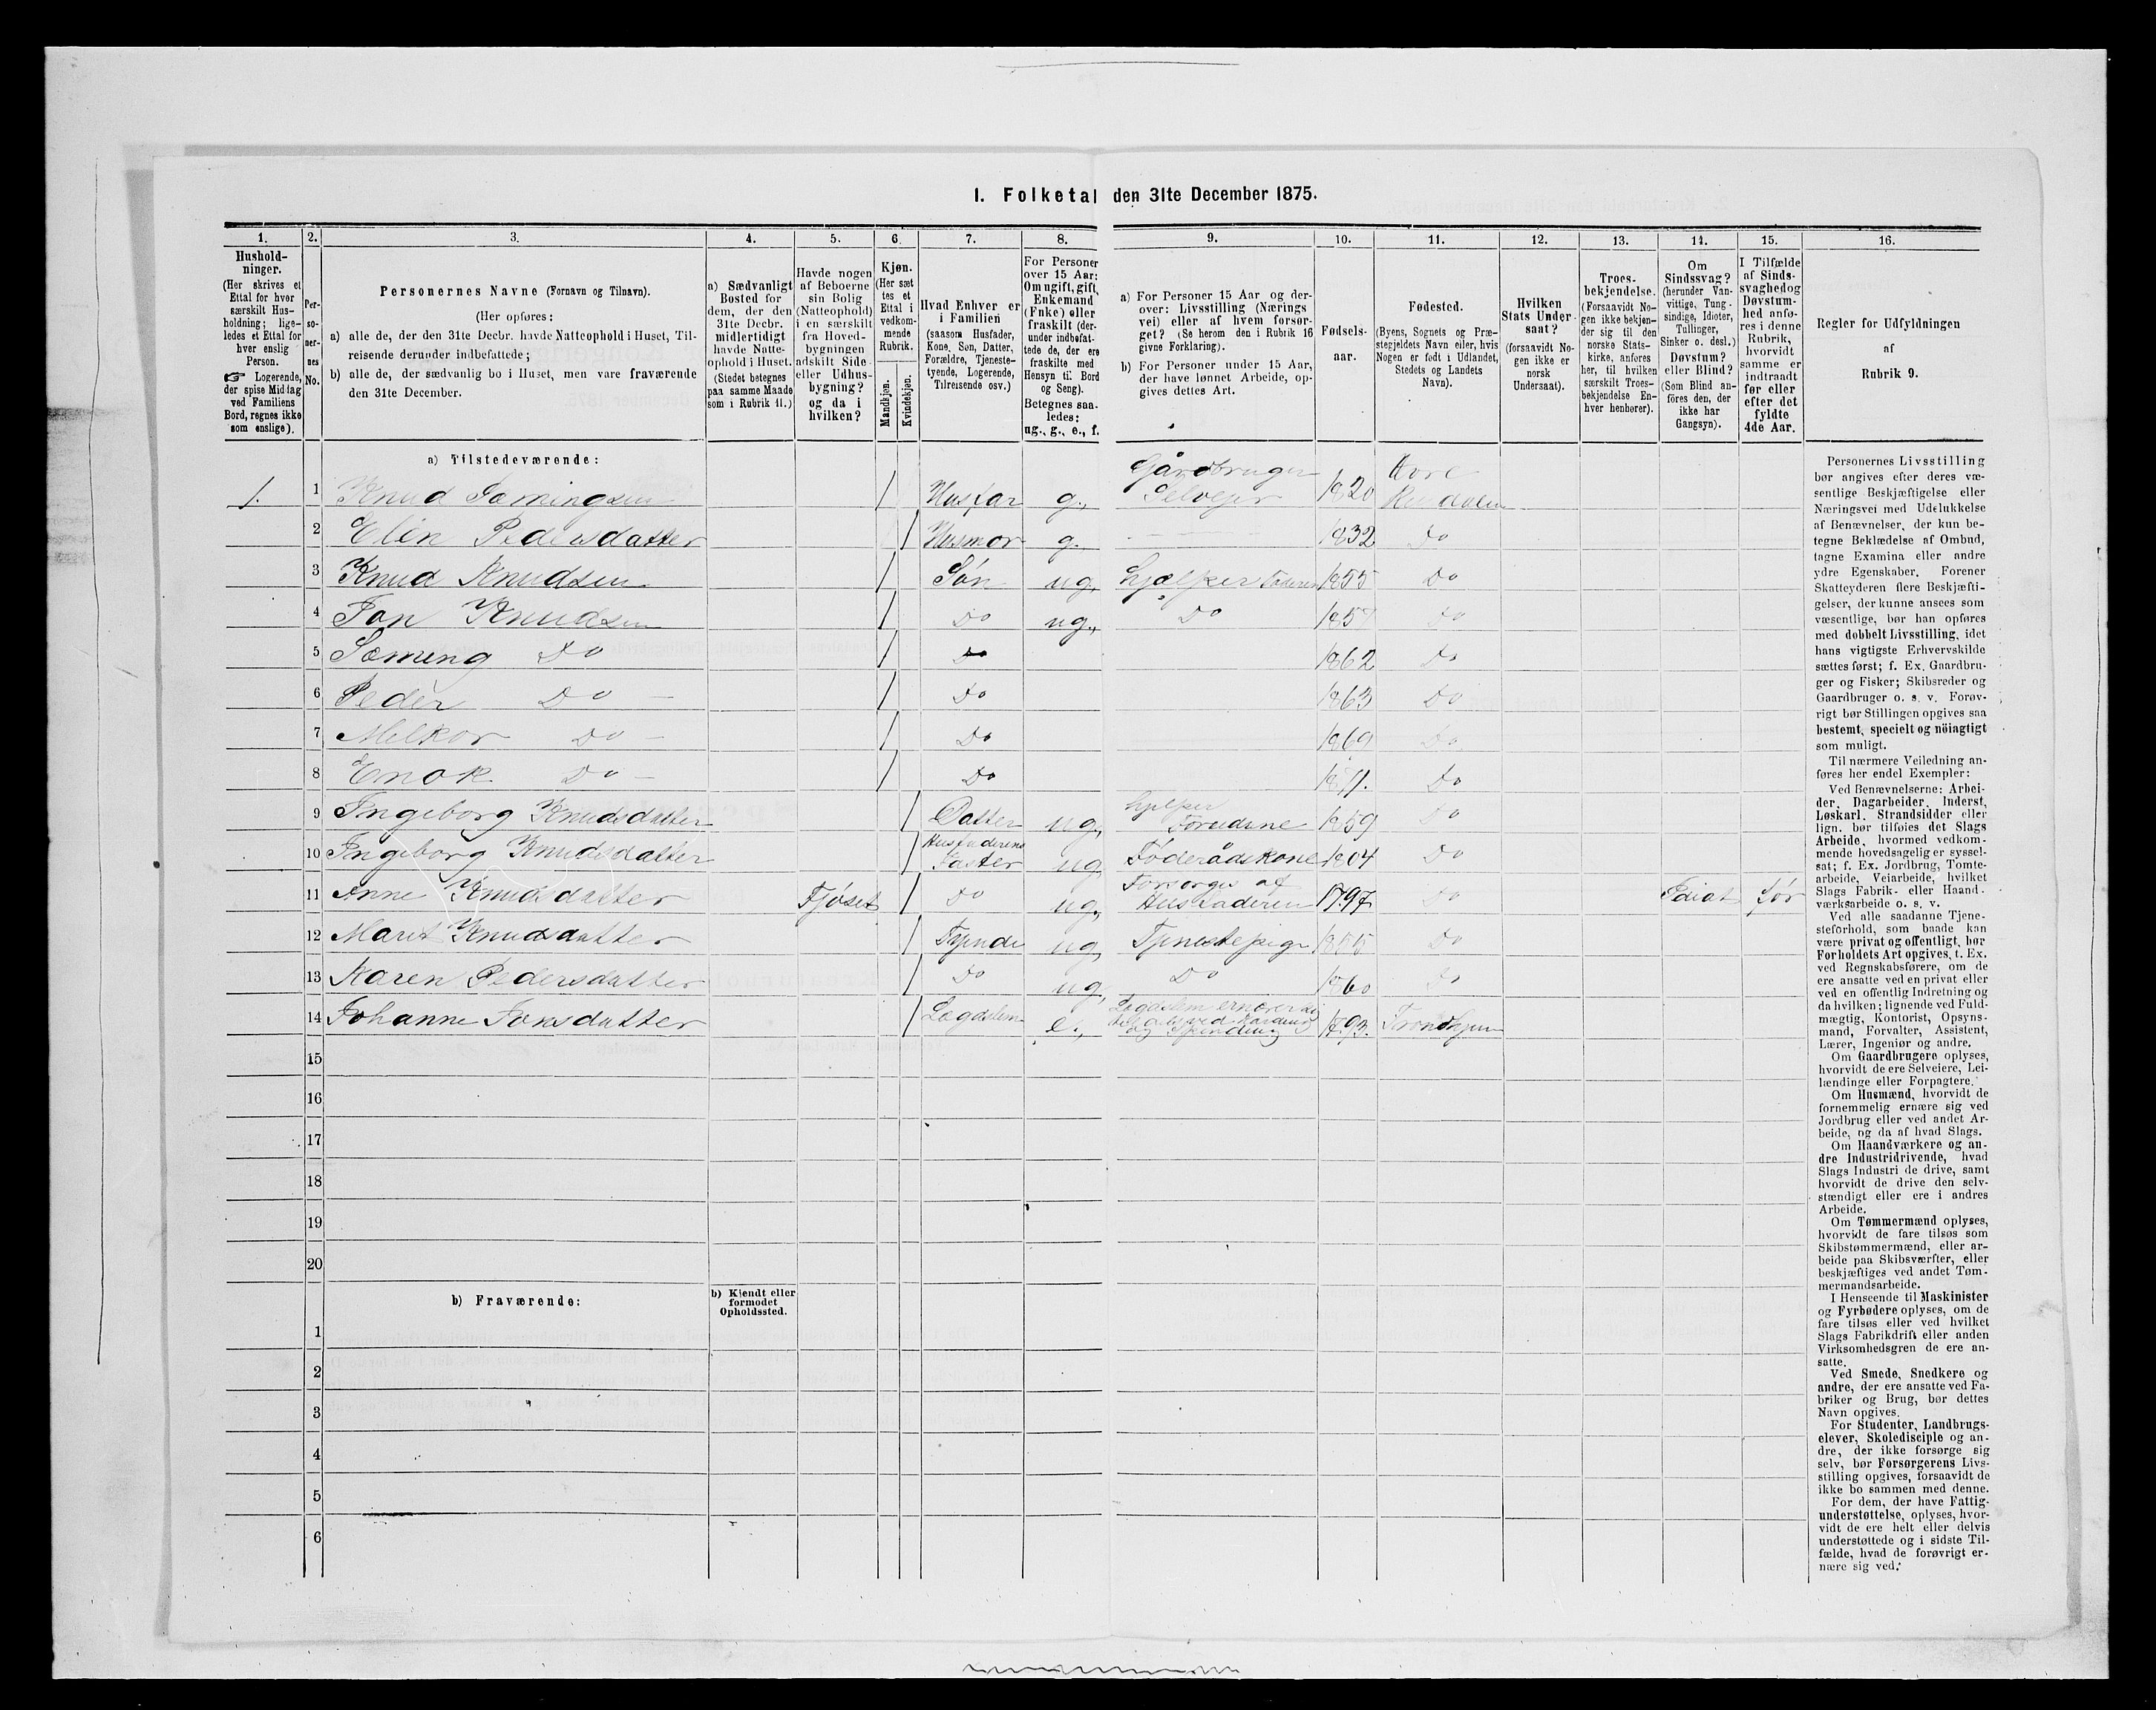 1. Folketal den 31te December 1875.
1.
2.
3.
4.
5.
6.
7.
8.
9.
10.
11.
12.
13.
14.
15.
16.
Hushold-
ninger.
(Her skrives et
Ettal for hver
særskilt Hus-
holdning; lige-
ledes et Ettal for
hver enslig
Person.
☞ Logerende,
der spise Middag
ved Familiens
Bord, regnes ikke
som enslige).
Per-
so-
ner-
nes
No.
Personernes Navne (Fornavn og Tilnavn).
(Her opføres:
a) alle de, der den 31te Decbr. havde Natteophold i Huset, Til-
reisende derunder indbefattede;
b) alle de, der sædvanlig bo i Huset, men vare fraværende
den 31te December.
a) Sædvanligt
Bosted for
dem, der den
31te Decbr.
midlertidigt
havde Natte-
ophold i Huset.
(Stedet betegnes
paa samme Maade
som i Rubrik 11.)
Havde nogen
af Beboerne
sin Bolig
(Natteophold)
i en særskilt
fra Hoved-
bygningen
adskilt Side
eller Udhus-
bygning?
og da i
hvilken?
Kjøn.
(Her sæt
tes et
Ettal i
vedkom-
mende
Rubrik.
Mandkjøn.
Kvindekjøn.
Hvad Enhver er
i Familien
(saasom Husfader,
Kone, Søn, Datter,
Forældre, Tjeneste-
tyende, Logerende,
Tilreisende osv.)
For Personer
over 15 Aar:
Om ugift, gift,
Enkemand
(Enke) eller
fraskilt (der-
under indbefat-
tede de, der ere
fraskilte med
Hensyn til Bord
og Seng).
Betegnes saa-
ledes:
ug., g., e., f.
a) For Personer 15 Aar og der-
over: Livsstilling (Nærings
vei) eller af hvem forsør-
get? (Se herom den i Rubrik 16
givne Forklaring).
b) For Personer under 15 Aar,
der have lønnet Arbeide, op-
gives dettes Art.
Fødsels-
aar.
Fødested.
(Byens, Sognets og Præ-
stegjeldets Navn eller, hvis
Nogen er født i Udlandet,
Stedets og Landets
Navn).
Hvilken
Stats Under-
saat?
(forsaavidt No-
gen ikke er
norsk
Undersaat).
Troes-
bekjendelse.
(Forsaavidt No-
gen ikke bekjen-
der sig til den
norske Stats-
kirke, anføres
her, til hvilken
særskilt Troes-
bekjendelse En-
hver henhører).
Om
Sindssvag?
(herunder Van-
vittige, Tung-
sindige, Idioter,
Tullinger,
Sinker o. desl.)
Døvstum?
eller Blind?
(Som Blind an-
føres den, der
ikke har
Gangsyn).
I Tilfælde
af Sinds-
svaghed og
Døvstum-
hed anfø-
res i denne
Rubrik,
hvorvidt
samme er
indtraadt
før eller
efter det
fyldte
4de Aar.
Regler for Udfyldningen
af
Rubrik 9.
a) Tilstedeværende:
1. 1 Knud Sæmingsen Husfar g. Gårdbruger Selveier 1820 Hore Rendalen
2 Elen Pedersdatter Husmor g. 1832 Do
3 Knud Knudsen Søn ug. hjælper faderen 1855 Do
4 Jon Knudsen Do ug., Do 1857 Do
5 Sæming Do Do 1862 Do
6 Peder Do Do 1863 Do
7 Melkor Do Do 1869 Do
8 Enok Do Do 1871. Do
9 Ingeborg Knudsdatter Datter ug., hjelper 1859 Do
10 Ingeborg Knudsdatter Husfaderens Faster ug Föderådskone 1804 Do
11 Anne Knudsdatter Fjöset Do ug., Forsørges af Husfaderen 1797 Do Idiot för
12 Marit Knudsdatter Tyende ug, Tjenestepige 1855 Do
13 Karen Pedersdatter Do ug, Do 1860 Do
14 Johanne Jonsdatter Lægdslem e., Lægdslem ernærer sig 1793. Trondhjem
15
16
17
18
19
20
b) Fraværende:
b) Kjendt eller
formodet
Opholdssted.
1
2
3
4
5
6
Personernes Livsstilling
bør angives efter deres væ-
sentlige Beskjæftigelse eller
Næringsvei med Udelukkelse
af Benævnelser, der kun be-
tegne Beklædelse af Ombud,
tagne Examina eller andre
ydre Egenskaber. Forener
Skatteyderen flere Beskjæfti-
gelser, der kunne ansees som
væsentlige, bør han opføres
med dobbelt Livsstilling, idet
hans vigtigste Erhvervskilde
sættes først; f. Ex. Gaardbru-
ger og Fisker; Skibsreder og
Gaardbruger o. s. v. Forøv-
rigt bør Stillingen opgives saa
bestemt, specielt og nöiagtigt
som muligt.
Til nærmere Veiledning an-
føres her endel Exempler:
Ved Benævnelserne: Arbei-
der, Dagarbeider, Inderst,
Løskarl, Strandsidder eller
lign. bør tilføies det Slags
Arbeide, hvormed vedkom-
mende hovedsagelig er syssel-
sat; f. Ex. Jordbrug, Tomte-
arbeide, Veiarbeide, hvilket
Slags Fabrik- eller Haand-
værksarbeide o. s. v.
Ved alle saadanne Tjene-
steforhold, som baade kan
være privat og offentligt, bør
Forholdets Art opgives, f. Ex.
ved Regnskabsførere, om de
ere ansatte ved en privat eller
ved en offentlig Indretning og
da hvilken; lignende ved Fuld-
mægtig, Kontorist, Opsyns-
mand, Forvalter, Assistent,
Lærer, Ingeniør og andre.
Om Gaardbrugere oplyses,
hvorvidt de ere Selveiere, Lei-
lændinge eller Forpagtere.
Om Husmænd, hvorvidt de
fornemmelig ernære sig ved
Jordbrug eller ved andet Ar-
beide, og da af hvad Slags.
Om Haandværkere og an-
dre Industridrivende, hvad
Slags Industri de drive, samt
hvorvidt de drive den selv-
stændigt eller ere i andres
Arbeide.
Om Tømmermænd oplyses,
hvorvidt de fare tilsøs som
Skibstømmermænd, eller ar-
beide paa Skibsværfter, eller
beskjæftiges ved andet Tøm-
mermandsarbeide.
I Henseende til Maskinister
og Fyrbødere oplyses, om de
fare tilsøs eller ved hvilket
Slags Fabrikdrift eller anden
Virksomhedsgren de ere an-
satte.
Ved Smede, Snedkere og
andre, der ere ansatte ved Fa-
briker og Brug, bør dettes
Navn opgives.
For Studenter, Landbrugs-
elever, Skoledisciple og an-
dre, der ikke forsørge sig
selv, bør Forsørgerens Livs-
stilling opgives, forsaavidt de
ikke bo sammen med denne.
For dem, der have Fattig-
understøttelse, oplyses, hvor-
vidt de ere helt eller delvis
understøttede og i sidste Til-
fælde, hvad de forøvrigt er-
nære sig ved.